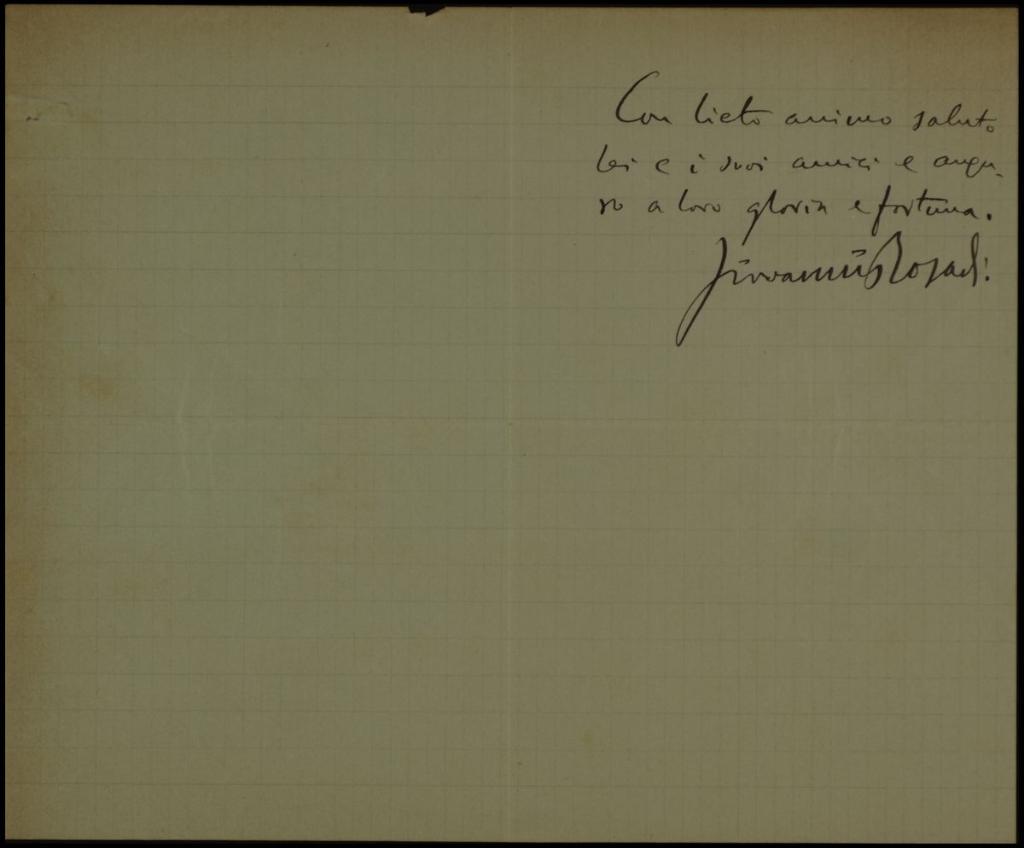 Con lieto animo saluto
lei e i suoi amici e augu-
ro a loro gloria e fortuna.
Giovanni Rosadi